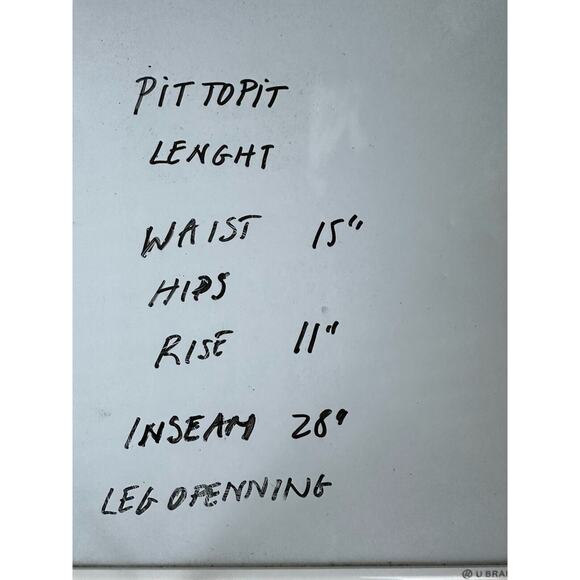 PIT TO PIT
LENGHT
WAIST 15"
HIPS
RISE 11"
INSEAM 28"
LEG OPENNING
U BRA